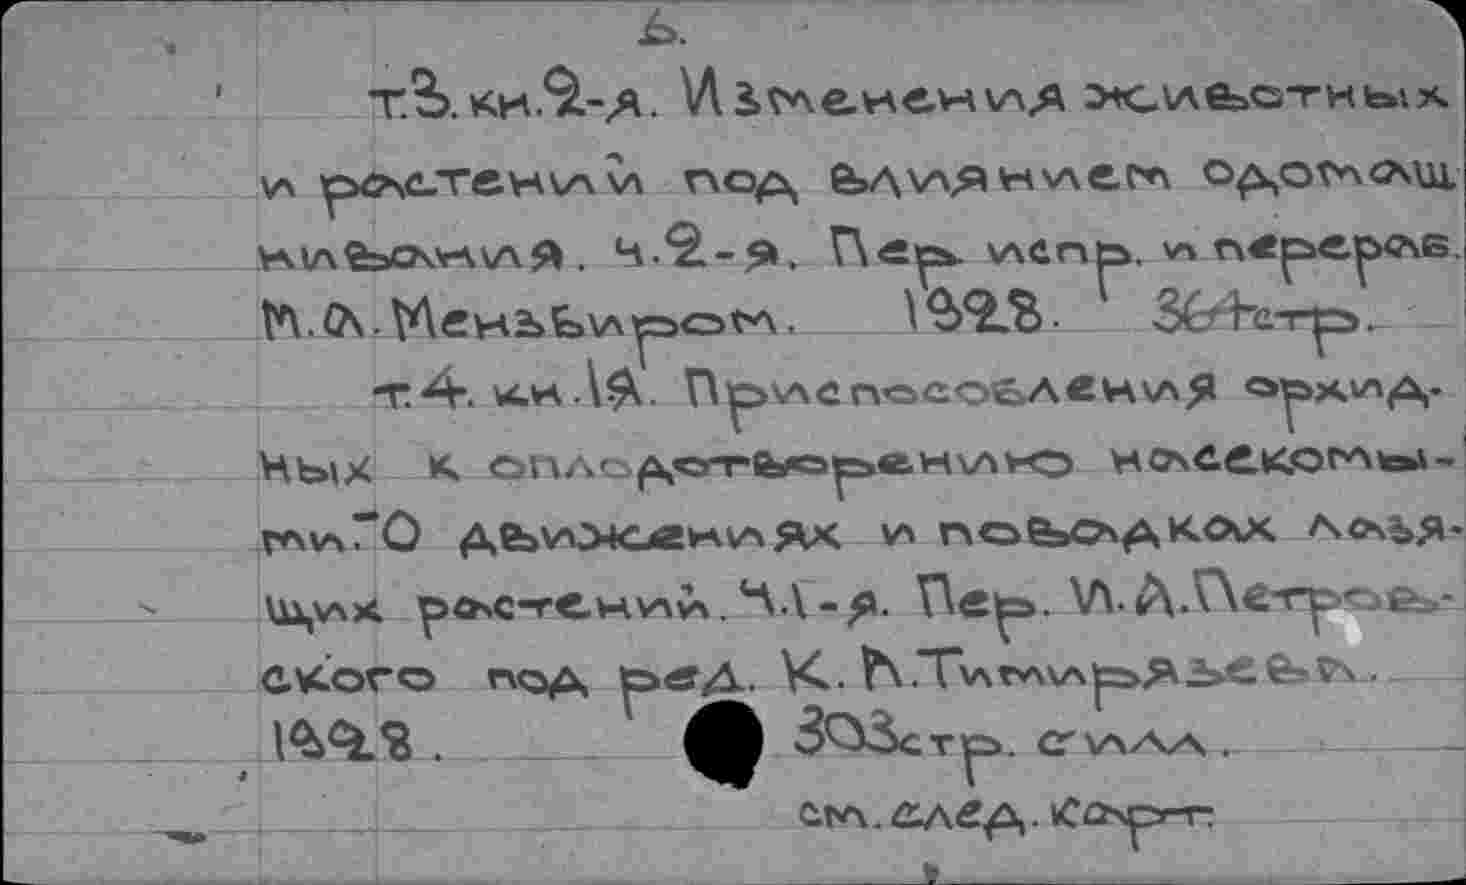 6.
т.3.кн.2-я. Изменения животных
и растений под влиянием одомаш
нивания. ч.2-я. Пер. испр. и перераб.
М.А.Мензбиром. 1928. стр.
т.4. кн.1я. Приспособления орхид-
ных к оплодотворению насекомы-
ми. О движениях и повадках лазя-
щих растений. Ч.1-я. Пер. И.А.Петров-
ского под ред. К.А.Тимирязева.
1928. 303стр. с илл.
см.след.карт.